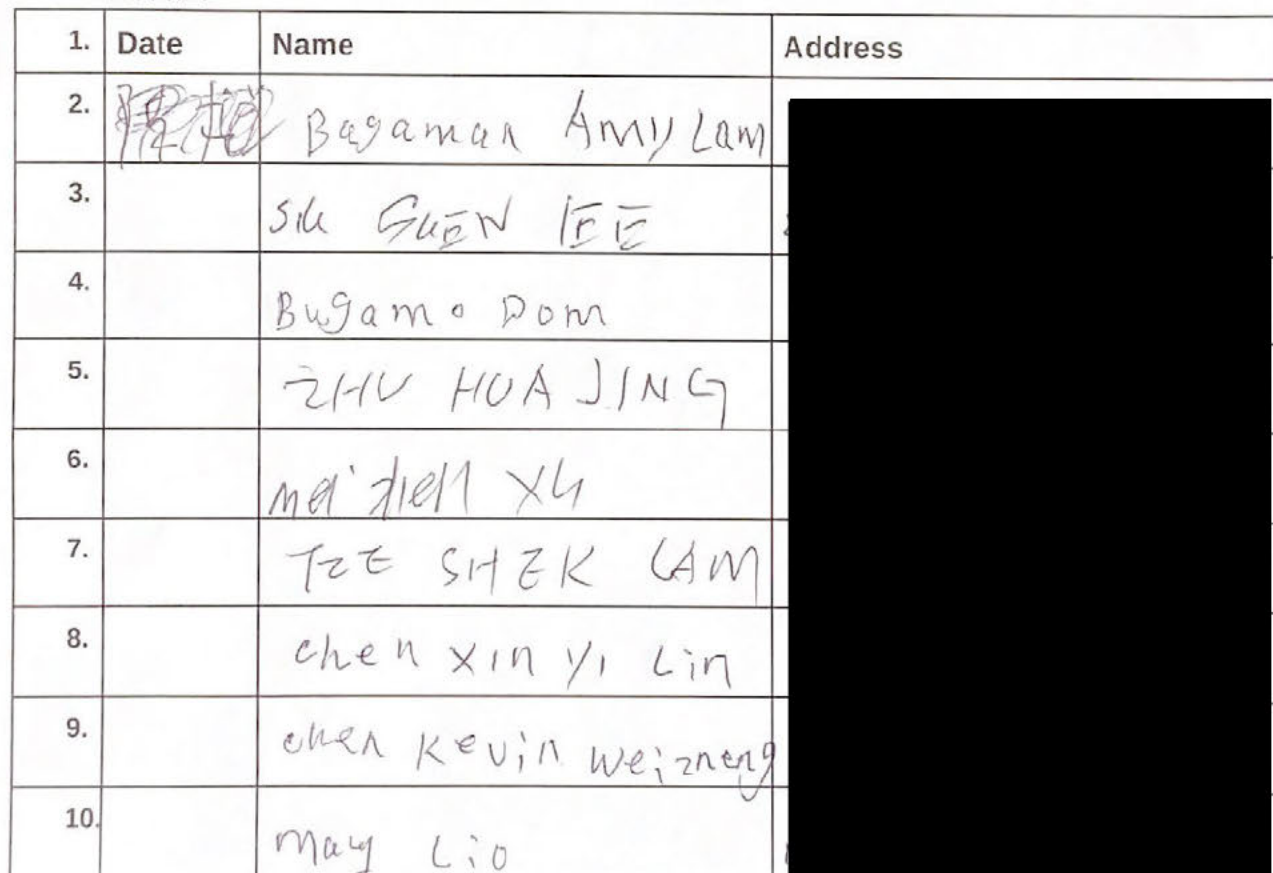 1. Date Name Address
2. Bagaman Amy Lam
3. Sik GuEN IEE
4. Bugamo Dom
5. ZHU HUA JING
6. mei XU
7. TZE SHEK LAM
8. chen xin yi Lin
9. chen Kevin weizneng
10. May Lio